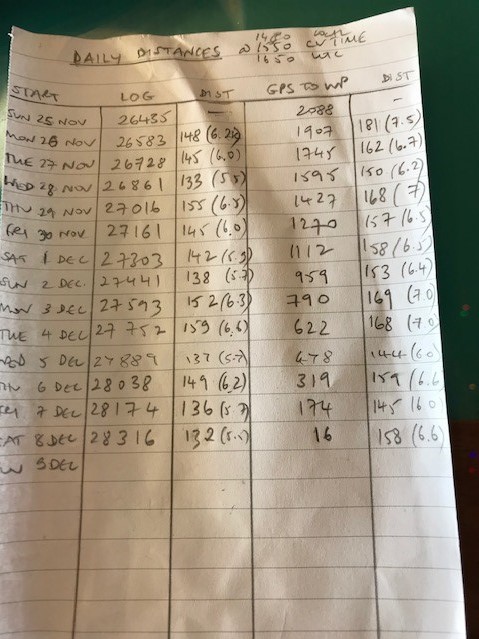 1450 LOCAL
DAILY DISTANCES @ 1550 CV TIME
1650 UTC
START LOG DIST GPS TO WP DIST
SUN 25 NOV 26435 — 2088 —
MON 26 NOV 26583 148 (6.2) 1907 181 (7.5)
TUE 27 NOV 26728 145 (6.0) 1745 162 (6.7)
WED 28 NOV 26861 133 (5.5) 1595 150 (6.2)
THU 29 NOV 27016 155 (6.5) 1427 168 (7)
FRI 30 NOV 27161 145 (6.0) 1270 157 (6.5)
SAT 1 DEC 27303 142 (5.9) 1112 158 (6.5)
SUN 2 DEC. 27441 138 (5.7) 959 153 (6.4)
MON 3 DEC 27593 152 (6.3) 790 169 (7.0)
TUE 4 DEC 27752 159 (6.6) 622 168 (7.0)
WED 5 DEC 27889 137 (5.7) 478 144 (6.0)
HU 6 DEC 28038 149 (6.2) 319 159 (6.6
RI 7 DEC 28174 136 (5.7) 174 145 (6.0)
AT 8 DEC 28316 132 (5.5) 16 158 (6.6)
UN 9 DEC